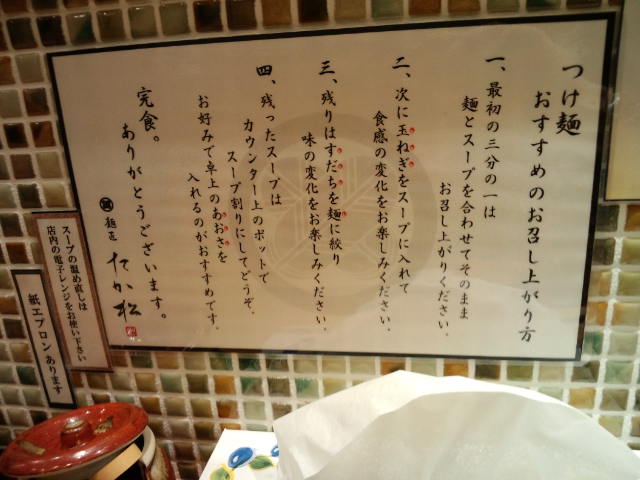 つけ麺
おすすめのお召し上がり方
一、最初の三分の一は
麺とスープを合わせてそのまま
お召し上がりください。
二、次に玉ねぎをスープに入れて
食感の変化をお楽しみください。
三、残りはすだちを麺に絞り
味の変化をお楽しみください。
四、残ったスープは
カウンター上のポットで
スープ割りにしてどうぞ。
お好みで卓上のあおさを
入れるのがおすすめです。
完食。
ありがとうございます。
麺匠 たか松
スープの温め直しは
店内の電子レンジをお使い下さい
紙エプロンあります